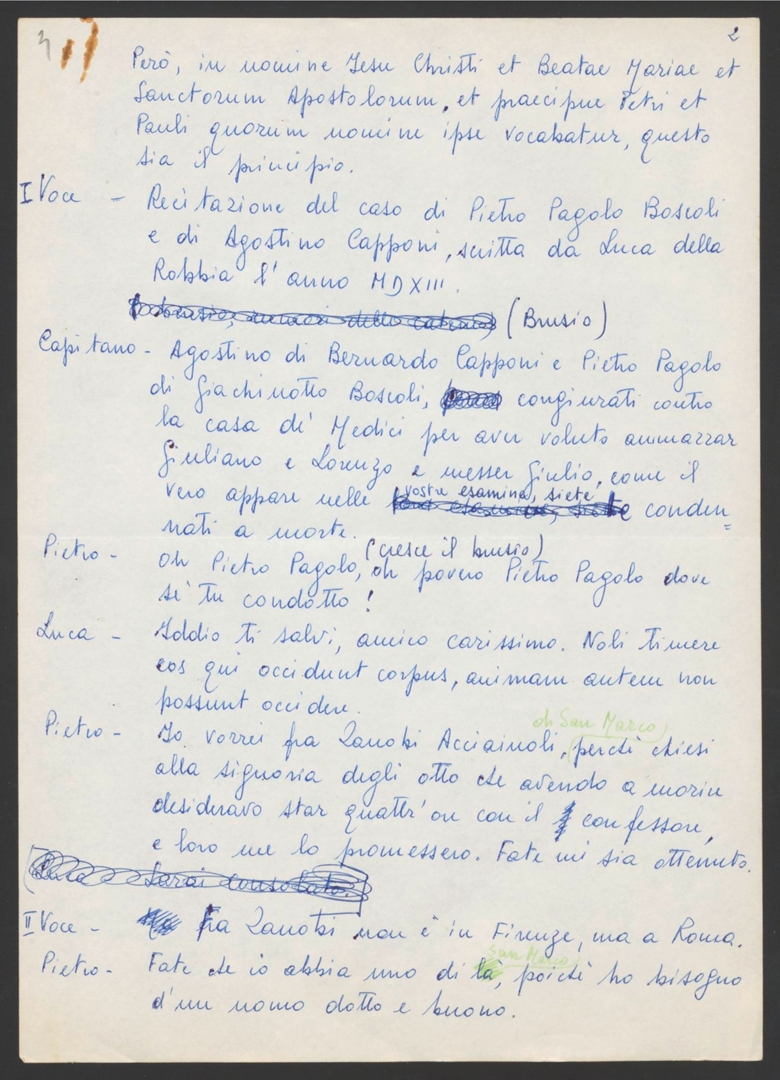 2
Però, in nomine Jesu Christi et Beatae Mariae et
Sanctorum Apostolorum, et praecipue Petri et
Pauli quorum nomine ipse vocabatur, questo
sia il principio.
I Voce - Recitazione del caso di Pietro Pagolo Boscoli
e di Agostino Capponi, scritta da Luca della
Robbia l' anno MDXIII.
(Brusio)
Capitano - Agostino di Bernardo Capponi e Pietro Pagolo
di Giachinotto Boscoli, congiurati contro
la casa de' Medici per aver voluto ammazzar
Giuliano e Lorenzo e messer Giulio, come il
vostre esamina, siete
vero appare nelle conden=
nati a morte.
(cresce il brusio)
Pietro - Oh Pietro Pagolo, oh povero Pietro Pagolo dove
se' tu condotto!
Luca - Iddio ti salvi, amico carissimo. Noli timere
eos qui occidunt corpus, animam autem non
possunt occidere.
di San Marco
Pietro - Io vorrei fra Zanobi Acciaiuoli, perchè chiesi
alla signoria degli otto che avendo a morire
desideravo star quattr'ore con il confessore,
e loro me lo promessero. Fate mi sia ottenuto.
Luca - Sarai consolato.
II Voce - Fra Zanobi non è in Firenze, ma a Roma.
San Marco
Pietro - Fate che io abbia uno di là, poichè ho bisogno
d'un uomo dotto e buono.